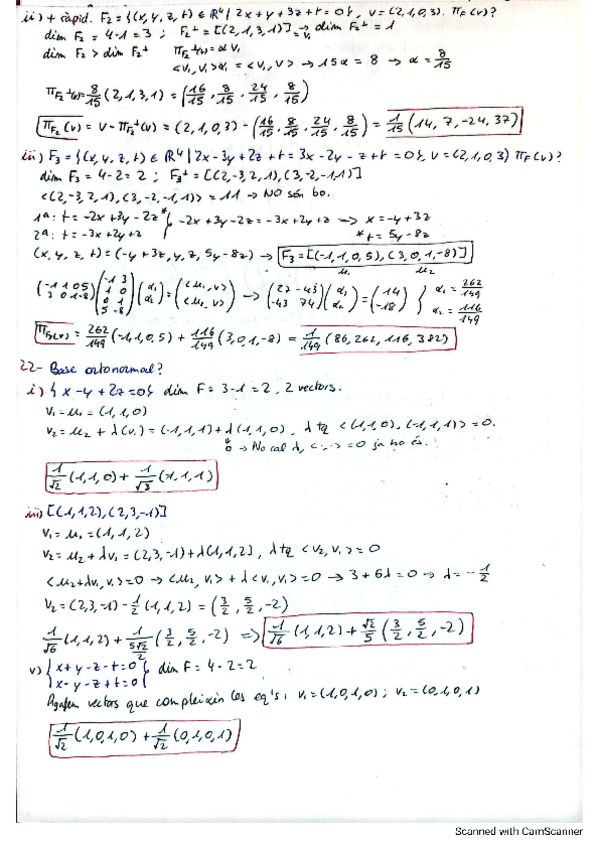 ii) + ràpid. F₂ = {(x, y, z, t) ∈ ℝ⁴ | 2x + y + 3z + t = 0}, v = (2, 1, 0, 3). π_F(v)?
dim F₂ = 4-1 = 3 ; F₂⊥ = [(2, 1, 3, 1)] → dim F₂⊥ = 1
= v₁
dim F₂ > dim F₂⊥ π_F₂⊥(v) = α v₁
<v₁, v₁>α₁ = <v₁, v> → 15α = 8 → α = 8/15
π_F₂⊥(v) = 8/15 (2, 1, 3, 1) = (16/15, 8/15, 24/15, 8/15)
π_F₂(v) = v - π_F₂⊥(v) = (2, 1, 0, 3) - (16/15, 8/15, 24/15, 8/15) = 1/15 (14, 7, -24, 37)
iii) F₃ = {(x, y, z, t) ∈ ℝ⁴ | 2x - 3y + 2z + t = 3x - 2y - z + t = 0}, v = (2, 1, 0, 3) π_F(v)?
dim F₃ = 4-2 = 2 ; F₃⊥ = [(2, -3, 2, 1), (3, -2, -1, 1)]
<(2, -3, 2, 1), (3, -2, -1, 1)> = 11 → NO són bo.
1ª: t = -2x + 3y - 2z * } -2x + 3y - 2z = -3x + 2y + z → x = -y + 3z
2ª: t = -3x + 2y + z * t = 5y - 8z
(x, y, z, t) = (-y + 3z, y, z, 5y - 8z) → F₃ = [(-1, 1, 0, 5), (3, 0, 1, -8)]
u₁ u₂
(-1 1 0 5 / 3 0 1 -8) (-1 3 / 1 0 / 0 1 / 5 -8) (α₁ / α₂) = (<u₁, v> / <u₂, v>) → (27 -43 / -43 74) (α₁ / α₂) = (14 / -18) { α₁ = 262/149 / α₂ = 116/149
π_F₃(v) = 262/149 (-1, 1, 0, 5) + 116/149 (3, 0, 1, -8) = 1/149 (86, 262, 116, 382)
22- Base ortonormal?
i) {x - y + 2z = 0} dim F = 3-1 = 2, 2 vectors.
v₁ = u₁ = (1, 1, 0)
v₂ = u₂ + λ(v₁) = (-1, 1, 1) + λ(1, 1, 0), λ tq <(1, 1, 0), (-1, 1, 1)> = 0.
0 → No cal λ, <·, ·> = 0 ja ho és.
1/√2 (1, 1, 0) + 1/√3 (-1, 1, 1)
iii) [(1, 1, 2), (2, 3, -1)]
v₁ = u₁ = (1, 1, 2)
v₂ = u₂ + λv₁ = (2, 3, -1) + λ(1, 1, 2), λ tq <v₂, v₁> = 0
<u₂ + λv₁, v₁> = 0 → <u₂, v₁> + λ<v₁, v₁> = 0 → 3 + 6λ = 0 → λ = -1/2
v₂ = (2, 3, -1) - 1/2 (1, 1, 2) = (3/2, 5/2, -2)
1/√6 (1, 1, 2) + 1/(5√2/2) (3/2, 5/2, -2) => 1/√6 (1, 1, 2) + √2/5 (3/2, 5/2, -2)
v) { x + y - z - t = 0 / x - y - z + t = 0 } dim F = 4-2 = 2
Agafem vectors que compleixin les eq's: v₁ = (1, 0, 1, 0) ; v₂ = (0, 1, 0, 1)
1/√2 (1, 0, 1, 0) + 1/√2 (0, 1, 0, 1)
Scanned with CamScanner